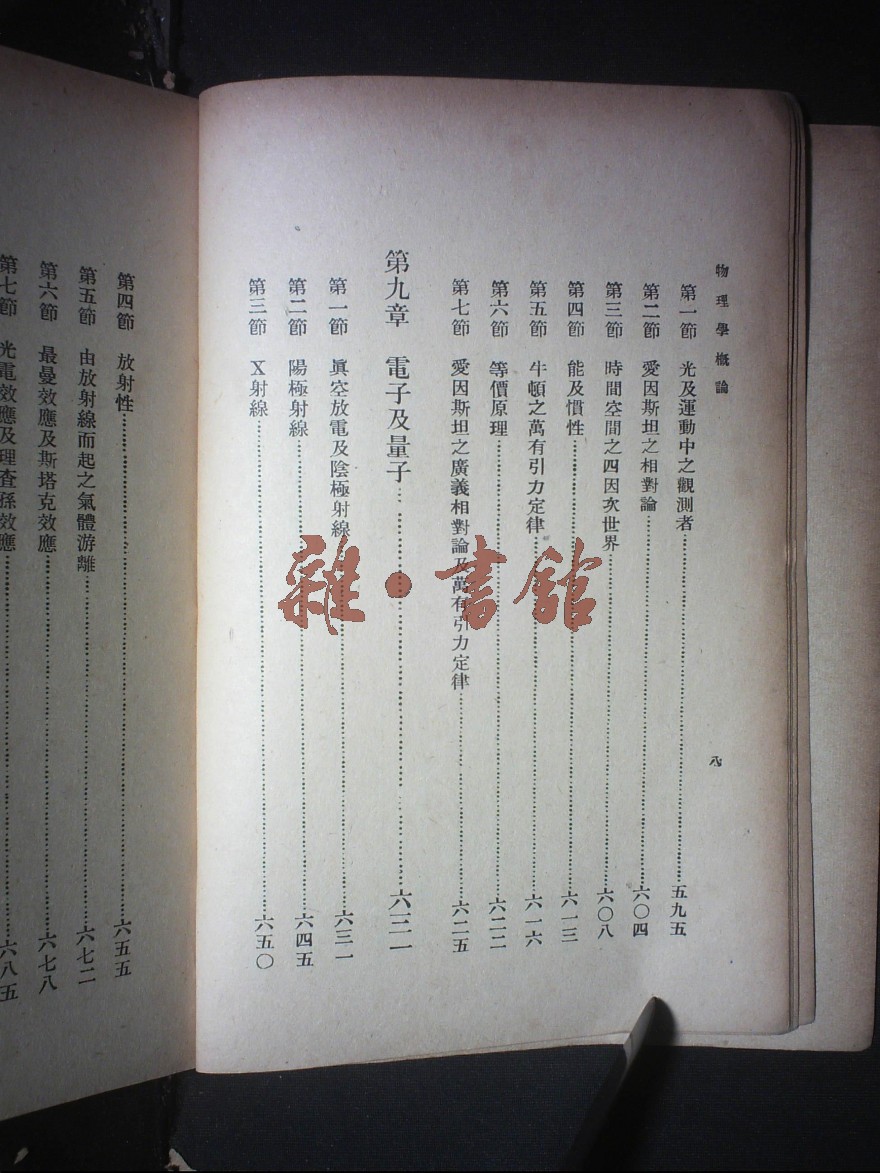 物理學概論
八
第一節 光及運動中之觀測者 五九五
第二節 愛因斯坦之相對論 六〇四
第三節 時間空間之四因次世界 六〇八
第四節 能及慣性 六一三
第五節 牛頓之萬有引力定律 六一六
第六節 等價原理 六二二
第七節 愛因斯坦之廣義相對論及萬有引力定律 六二五
第九章 電子及量子 六三一
第一節 眞空放電及陰極射線 六三一
第二節 陽極射線 六四五
第三節 X射線 六五〇
第四節 放射性 六五五
第五節 由放射線而起之氣體游離 六七二
第六節 最曼效應及斯塔克效應 六七八
第七節 光電效應及理查孫效應 六八五
雜·書館